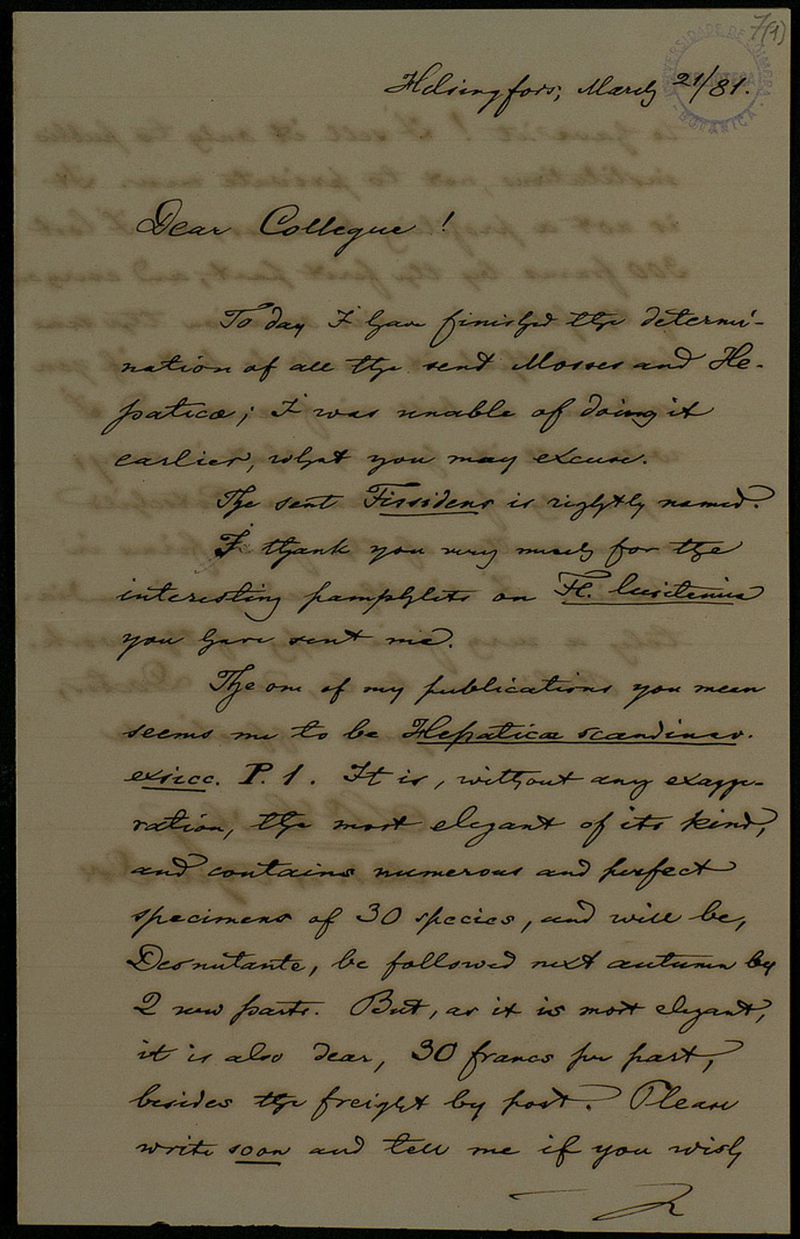 7(1)
UNIVERSIDADE DE COIMBRA
BOTANICA
Helsingfors, March 21/81.
Dear Collegue!
To day I have finished the determi-
nation of all the sent Mosses and He-
paticæ; I was unable of doing it
earlier, what you may excuse.
The sent Fissidens is rightly named.
I thank you very much for the
interesting pamphlets on Fl. lusitanica
you have sent me.
The one of my publications you mean
seems me to be Hepaticæ scandinav.
exsicc. P. 1. It is, without any exagge-
ration, the most elegant of its kind,
and contains numerous and perfect
specimens of 30 species, and will be,
be followed next autumn by
2 new parts. But, as it is most elegant,
it is also dear, 30 francs per part,
besides the freight by post. Please
write soon and tell me if you wish